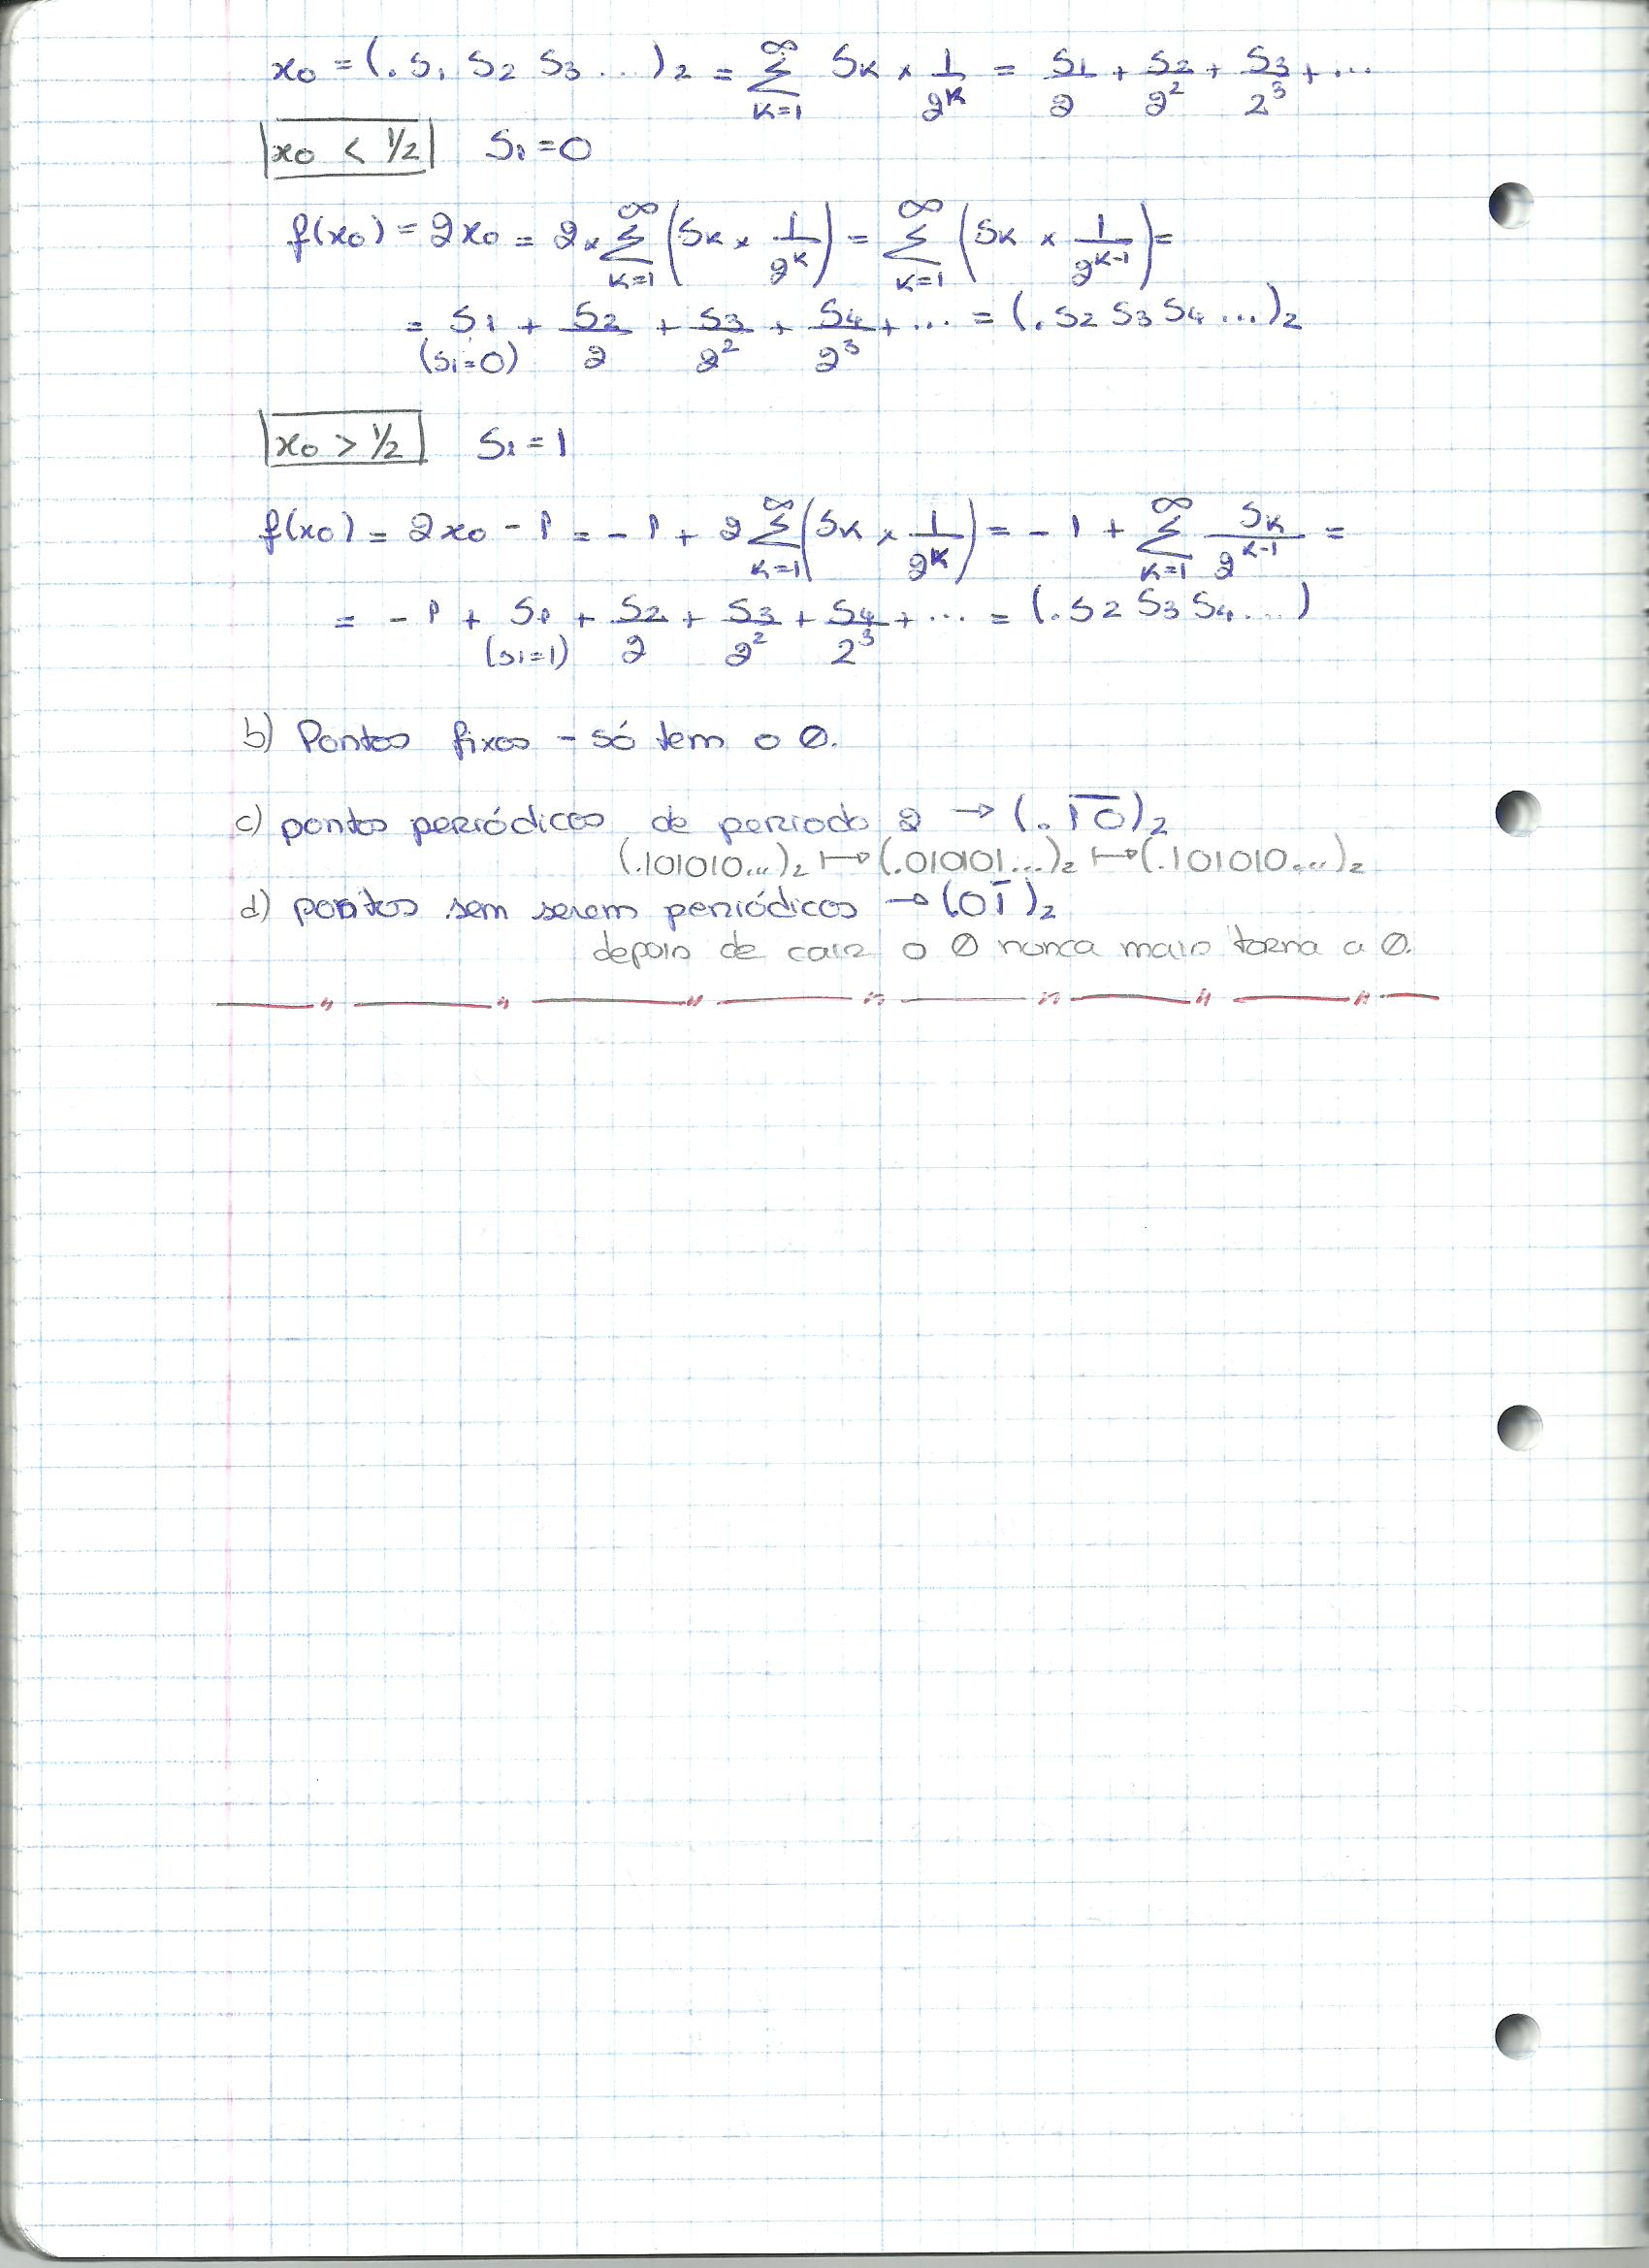 x₀ = (. s₁ s₂ s₃ ...)₂ = ∑_{k=1}^{∞} s_k × 1/2^k = s₁/2 + s₂/2² + s₃/2³ + ...
x₀ < 1/2 s₁ = 0
f(x₀) = 2x₀ = 2 × ∑_{k=1}^{∞} (s_k × 1/2^k) = ∑_{k=1}^{∞} (s_k × 1/2^{k-1}) =
= s₁ + s₂/2 + s₃/2² + s₄/2³ + ... = (. s₂ s₃ s₄ ...)₂
(s₁=0)
x₀ > 1/2 s₁ = 1
f(x₀) = 2x₀ - 1 = - 1 + 2 ∑_{k=1}^{∞} (s_k × 1/2^k) = - 1 + ∑_{k=1}^{∞} s_k/2^{k-1} =
= - 1 + s₁ + s₂/2 + s₃/2² + s₄/2³ + ... = (. s₂ s₃ s₄ ...)
(s₁=1)
b) Pontos fixos - só tem o 0.
c) pontos periódicos de periodo 2 → (. 1̅0̅)₂
(.101010...)₂ ↦ (.010101...)₂ ↦ (.101010...)₂
d) pontos sem serem periódicos → (01̅)₂
depois de cair o 0 nunca mais torna a 0.